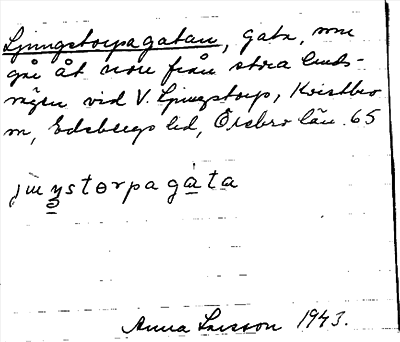 Ljungstorpagatan, gata, som
går åt norr från stora lands-
vägen vid V. Ljungstorp, Kvistbro
sn, Edsbergs hd, Örebro län. 65
Anna Larsson 1943.